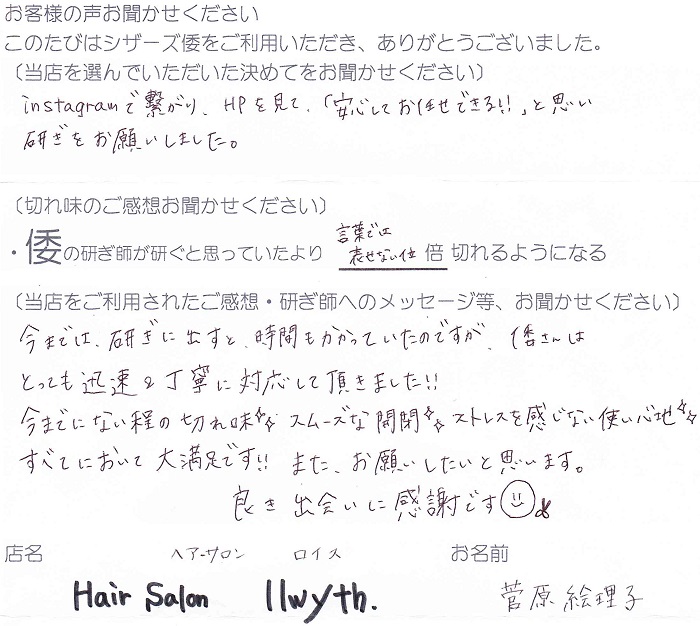 お客様の声お聞かせください
このたびはシザーズ倭をご利用いただき、ありがとうございました。
〔当店を選んでいただいた決めてをお聞かせください〕
instagramで繋がり、HPを見て、「安心してお任せできる!!」と思い
研ぎをお願いしました。
〔切れ味のご感想お聞かせください〕
言葉では
・倭の研ぎ師が研ぐと思っていたより 表せない位 倍 切れるようになる
〔当店をご利用されたご感想・研ぎ師へのメッセージ等、お聞かせください〕
今までは、研ぎに出すと、時間もかかっていたのですが、倭さんは
とっても迅速&丁寧に対応して頂きました!!
今までにない程の切れ味✧✧ スムーズな開閉✧✧ ストレスを感じない使い心地✧✧
すべてにおいて大満足です!! また、お願いしたいと思います。
良き出会いに感謝です
店名 ヘアーサロン ロイス お名前
Hair Salon llwyth. 菅原絵理子